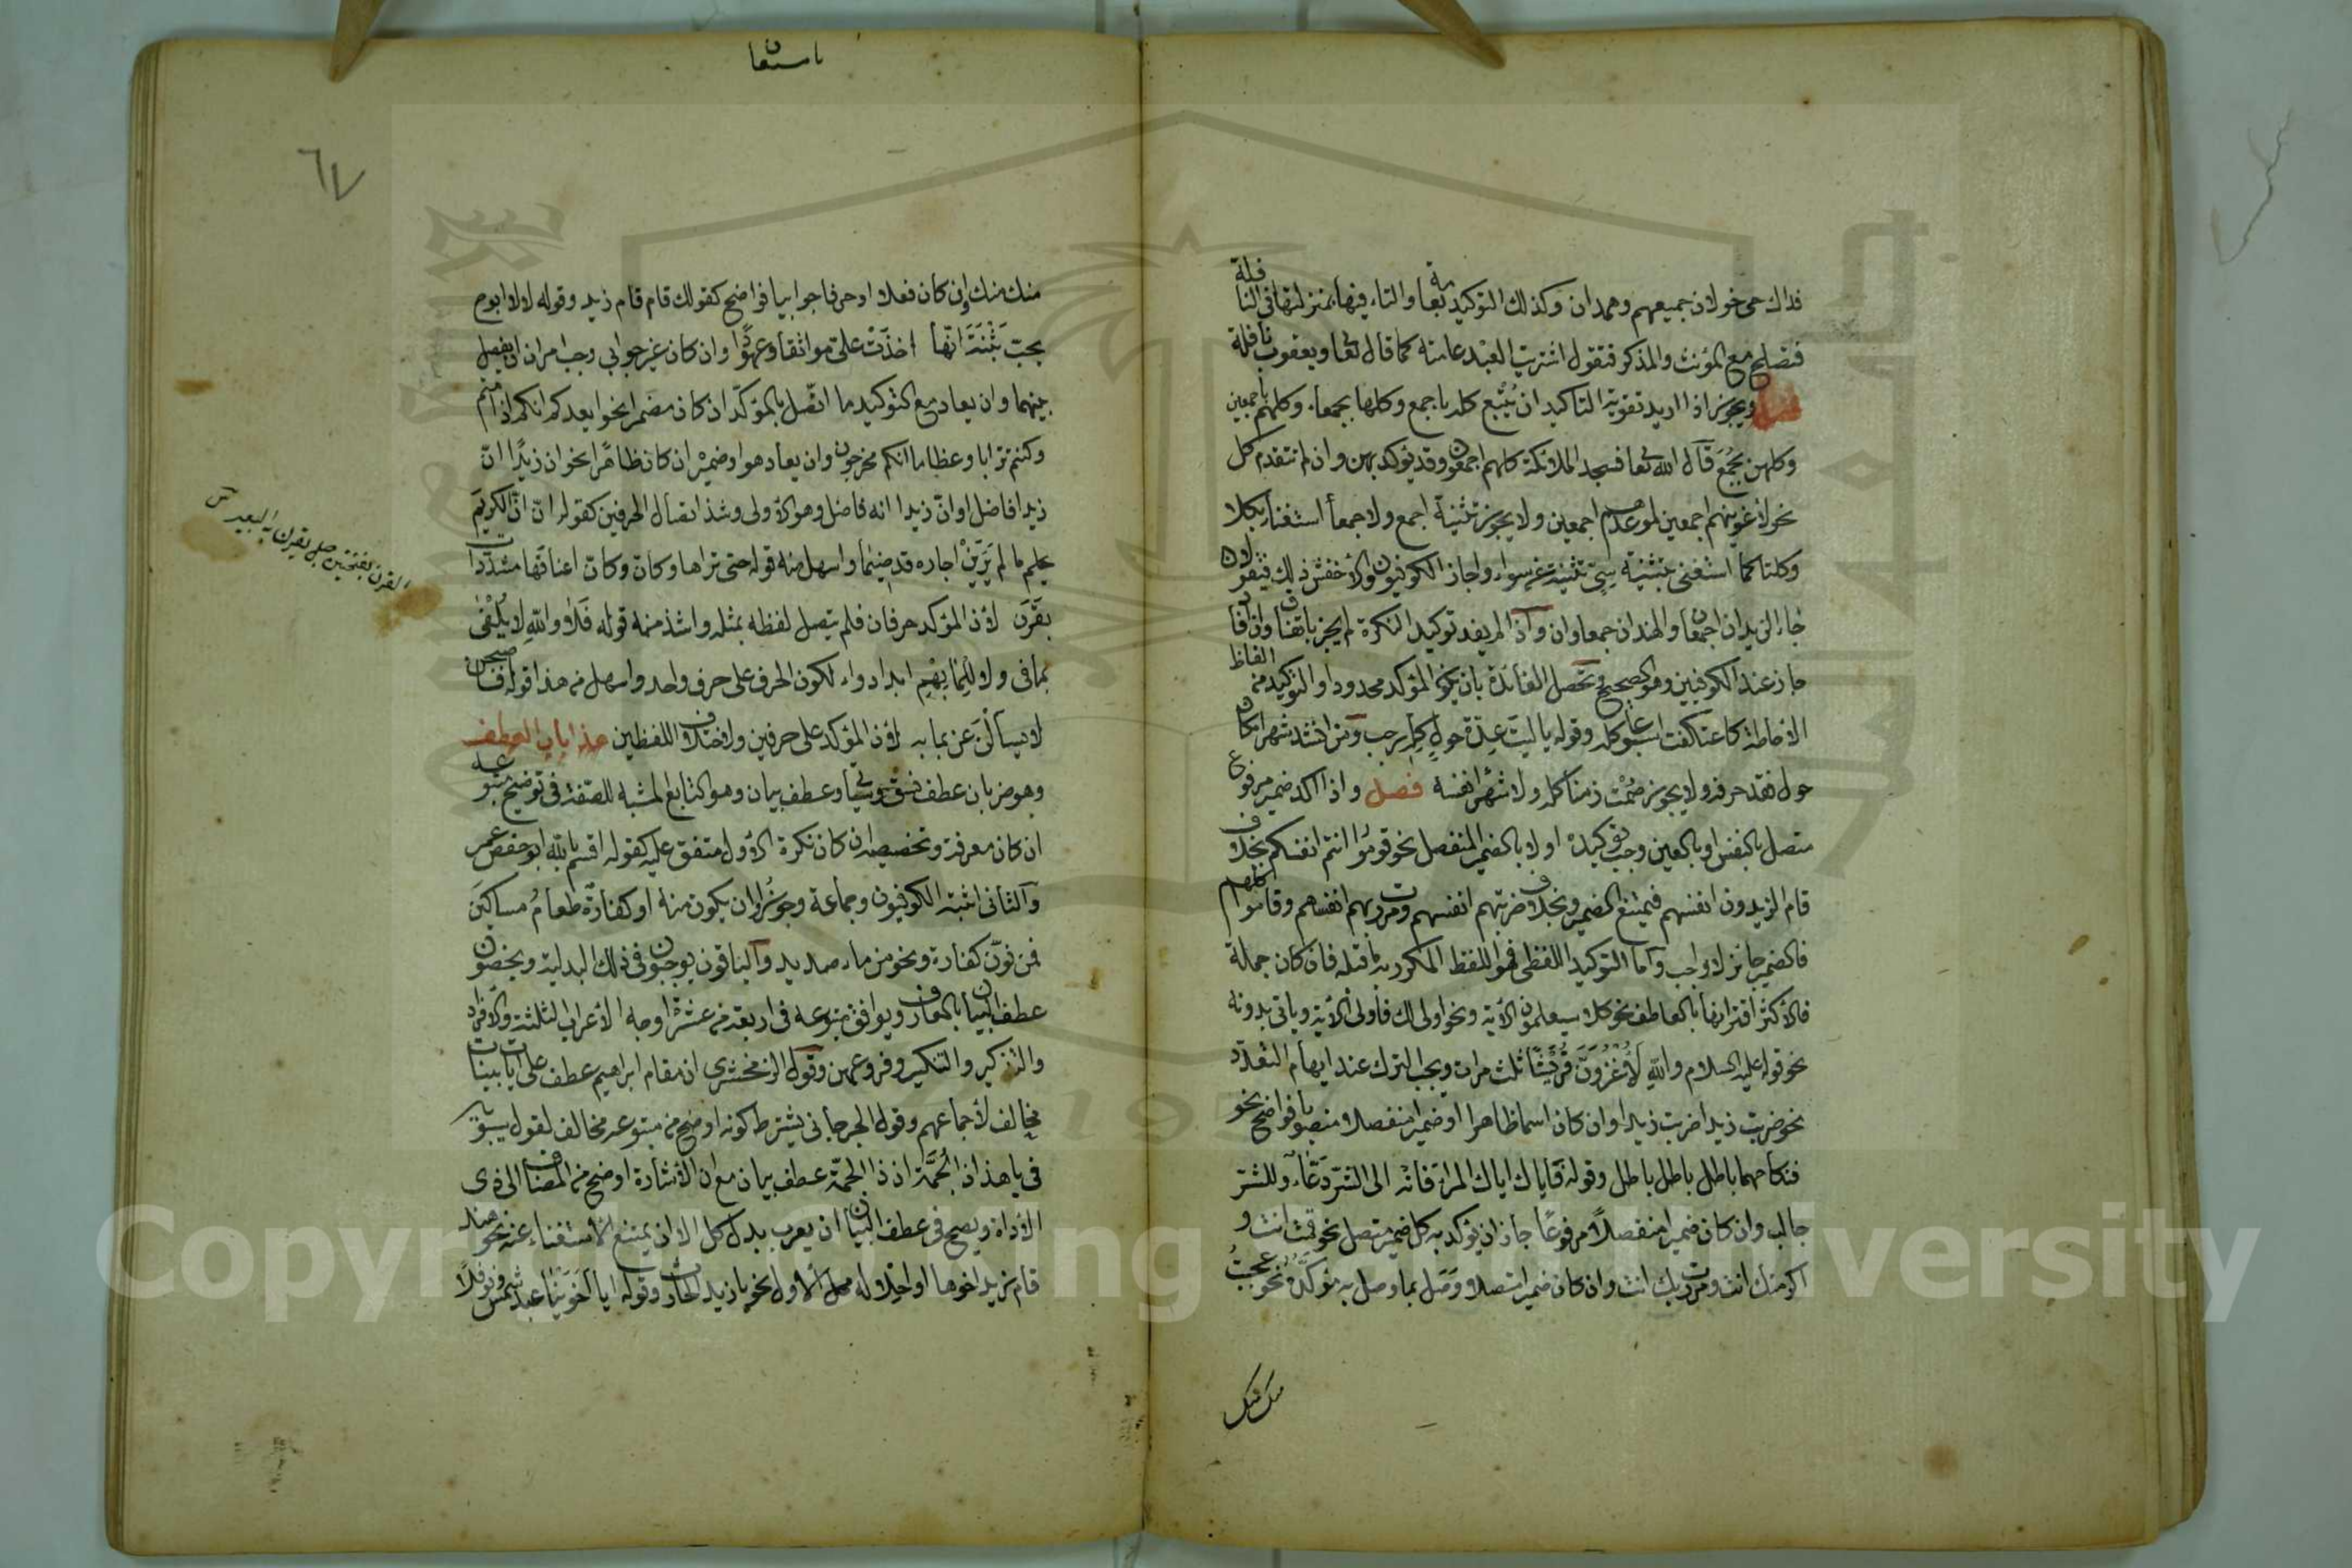 فداك حي خولان جميعهم وهمدان وكذلك التوكيد بعامة والتاء فيها بمنزلتها في النافلة
فتصلح مع المؤنث والمذكر فتقول اشتريت العبد عامته كما قال تعا ويعقوب نافلة
فصل ويجوز اذا اريد تقوية التاكيد ان يُتْبع كله باجمع وكلها بجمعاء وكلهم باجمعين
وكلهن بجُمَعَ قال الله تعا فسجد الملائكة كلهم اجمعون وقد يؤكد بهن وان لم تتقدم كل
نحو لاغوينهم اجمعين لموعدهم اجمعين ولا يجوز تثنية اجمع ولا جمعأ استغناء بكلا
وكلتا كما استغنى بتثنية سِيّ تثنية عن سواء واجاز الكوفيون والاخفش ذلك فتقول
جاء الزيدان اجمعان والهندان جمعاوان واذا لم يفد توكيد النكرة لم يجز باتفاق وان افاد
جاز عند الكوفيين وهو الصحيح وتحصل الفائدة بان يكون المؤكد محدودا والتوكيد من الفاظ
الاحاطة كاعتكفت اسبوعا كله وقوله ياليت عدّة حولٍ كلِّه رجب ومن انشد شهر مكان
حول فقد حرفه ولا يجوز صُمْت زمنا كله ولا شهرًا نفسه فصل واذا اكد ضمير مرفوع
متصل بالنفس او بالعين وجب توكيده اولا بالضمير المنفصل نحو قوموا انتم انفسكم بخلاف
قام الزيدون انفسهم فيمتنع الضمير وبخلاف ضربتهم انفسهم ومررت بهم انفسهم وقاموا كلهم
فالضمير جائز لا واجب واما التوكيد اللفظي فهو اللفظ المكرر به ما قبله فان كان جملة
فالاكثر اقترانها بالعاطف نحو كلا سيعلمون الآية ونحو اولى لك فأولى الآية وياتى بدونه
نحو قوله عليه السلام والله لأغزونّ قريشًا ثلث مرات ويجب الترك عند ايهام التعدّد
نحو ضربت زيدا ضربت زيدا وان كان اسما ظاهرا او ضميرا منفصلا منصوبا فواضح نحو
فنكاحها باطل باطل باطل وقوله فاياك اياك المراء فانه الى الشرّ دعّاء وللشرّ
جالب وان كان ضميرا منفصلاً مرفوعًا جاز ان يؤكد به كل ضمير متصل نحو قمت انت و
اكرمتك انت ومررت بك انت وان كان ضميرا متصلا وُصِل بما وصل به مؤكَّدُه نحو عجبتُ
منك منك
باستعان
٦٧
منك منك وإن كان فعلا او حرفا جوابيا فواضح كقولك قام قام زيد وقوله لا لا ابوح
بحبّ بَثْنَةَ انّها اخذَتْ علىّ مواثقا وعهودًا وان كان غير جوابي وجب امران ان يفصل
بينهما وان يعاد مع التوكيد ما اتّصل بالمؤكّد ان كان مضمرا نحو ايعدكم انكم اذا متم
وكنتم ترابا وعظاما انكم مخرجون وان يعاد هو او ضميره ان كان ظاهرًا نحو ان زيدًا انّ
زيدا فاضل او انّ زيدا انه فاضل وهو الاولى وشذ اتصال الحرفين كقوله انّ انّ الكريمَ
يحلم ما لم يَرَيَنْ اجاره قد ضيما واسهل منه قوله حتى تراها وكانّ وكانّ اعناقها مشدّدات
بقَرَن لأن المؤكد حرفان فلم يتصل لفظه بمثله واشذ منه قوله فَلا واللهِ لا يُلْفَى
لما فى ولا للِما بِهِم ابدا دواء لكون الحرف على حرف واحد واسهل من هذا قوله فاصبحن
لا يسألْنَه عن بما به لأن المؤكد على حرفين ولاختلاف اللفظين هذا باب العطف
وهو ضربان عطف نسق وسيأتي وعطف بيان وهو التابع المشبه للصفة فى توضيح متبوعه
ان كان معرفة وتخصيصه ان كان نكرة الاول متفق عليه كقوله اقسم بالله ابو حفص عمر
والثانى اثبته الكوفيون وجماعة وجوّزوا ان يكون منه او كفارةٌ طعامُ مساكينَ
فمن نوّن كفارة ونحو من ماء صديد والباقون يوجبون فى ذلك البدلية ويخصون
عطف البيان بالمعارف ويوافق متبوعه فى اربعة من عشرة اوجه الأعراب الثلثة والافراد
والتذكير والتنكير وفروعهن وقول الزمخشري ان مقام ابراهيم عطف على آيات بينات
مخالف لأجماعهم وقول الجرجانى يشترط كونه اوضح من متبوعه مخالف لقول سيبويه
فى يا هذا ذا الجُمَّة ان ذا الجمّة عطف بيان مع ان الأشارة اوضح من المضاف الى ذى
الأداة ويصح فى عطف البيان ان يعرب بدل كل الا ان يمتنع الاستغناء عنه نحو هند
قام زيد اخوها او احلاله محل الاول نحو يا زيد الحارث وقوله ايا اخَوَيْنا عبد شمس ونوفلاً
القرن بفتحتين حبل يقرن به البعير